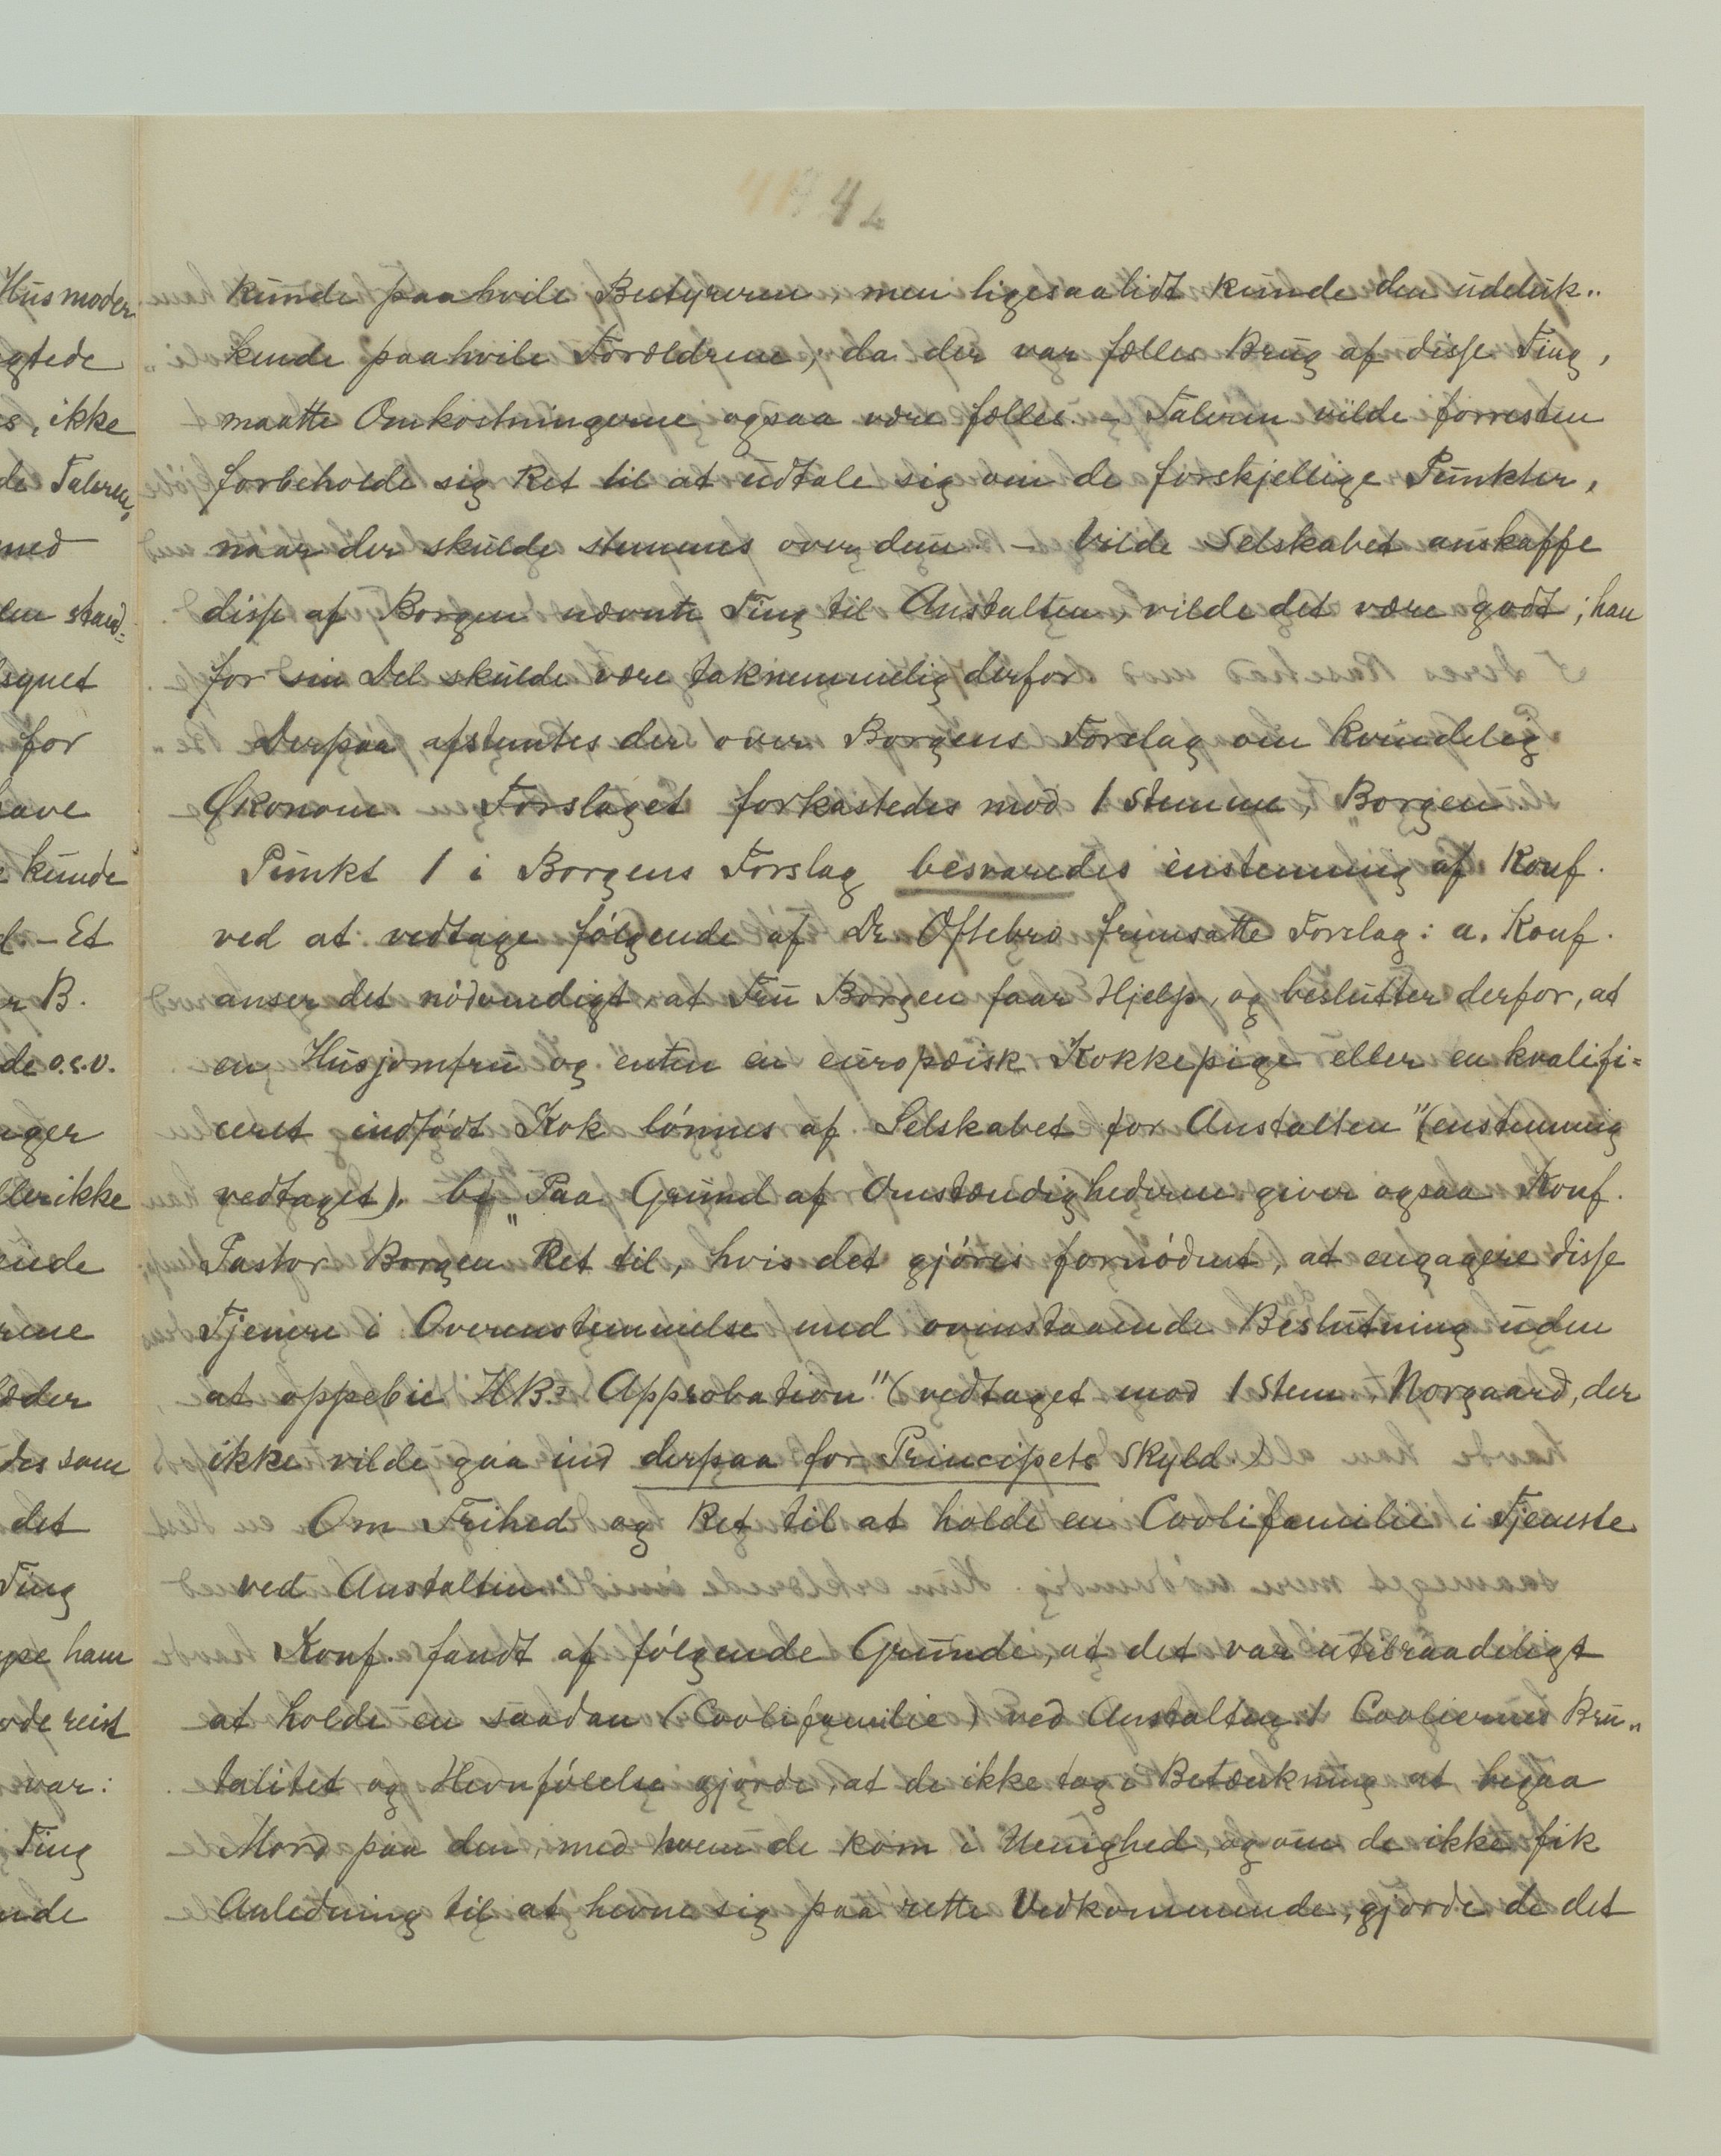 4
kunde paahvile Bestyreren, men ligesaalidt kunde den udeluk„
kende paahvile Forældrene; da der var fælles Brug af disse Ting,
maatte Omkostningerne ogsaa være fælles. – Taleren vilde forresten
forbeholde sig Ret til at udtale sig om de forskjellige Punkter,
naar der skulde stemmes over dem. – Vilde Selskabet anskaffe
disse af Borgen nævnte Ting til Anstalten, vilde det være godt; han
for sin Del skulde være taknemmelig derfor.
Derpaa afstemtes der over Borgens Forslag om kvindelig
Økonom. Forslaget forkastedes mod 1 Stemme, Borgen.
Punkt 1 i Borgens Forslag besvaredes enstemmig af Konf.
ved at vedtage følgende af Dr. Oftebro fremsatte Forslag: a. Konf.
anser det nødvendigt, at Fru Borgen faar Hjelp, og beslutter derfor, at
en Husjomfru og enten en europæisk Kokkepige eller en kvalifi=
ceret indfødt Kok lønnes af Selskabet for Anstalten" (enstemmig
vedtaget). b) „Paa Grund af Omstændighederne giver ogsaa Konf.
Pastor Borgen Ret til, hvis det gjøres fornødent, at engagere disse
Tjenere i Overenstemmelse med ovenstaaende Beslutning uden
at oppebie HBs Approbation" (vedtaget mod 1 Stem. Norgaard, der
ikke vilde gaa ind derpaa for Princippets Skyld)
Om Frihed og Ret til at holde en Coolifamilie i Tjeneste
ved Anstalten.
Konf. fandt af følgende Grunde, at det var utilraadeligt
at holde en saadan (Coolifamilie) ved Anstalten. 1 Cooliernes Bru„
talitet og Hevnfølelse gjorde, at de ikke tog i Betænkning at begaa
Mord paa den, med hvem de kom i Uenighed, og om de ikke fik
Anledning til at hevne sig paa rette Vedkommende, gjorde de det